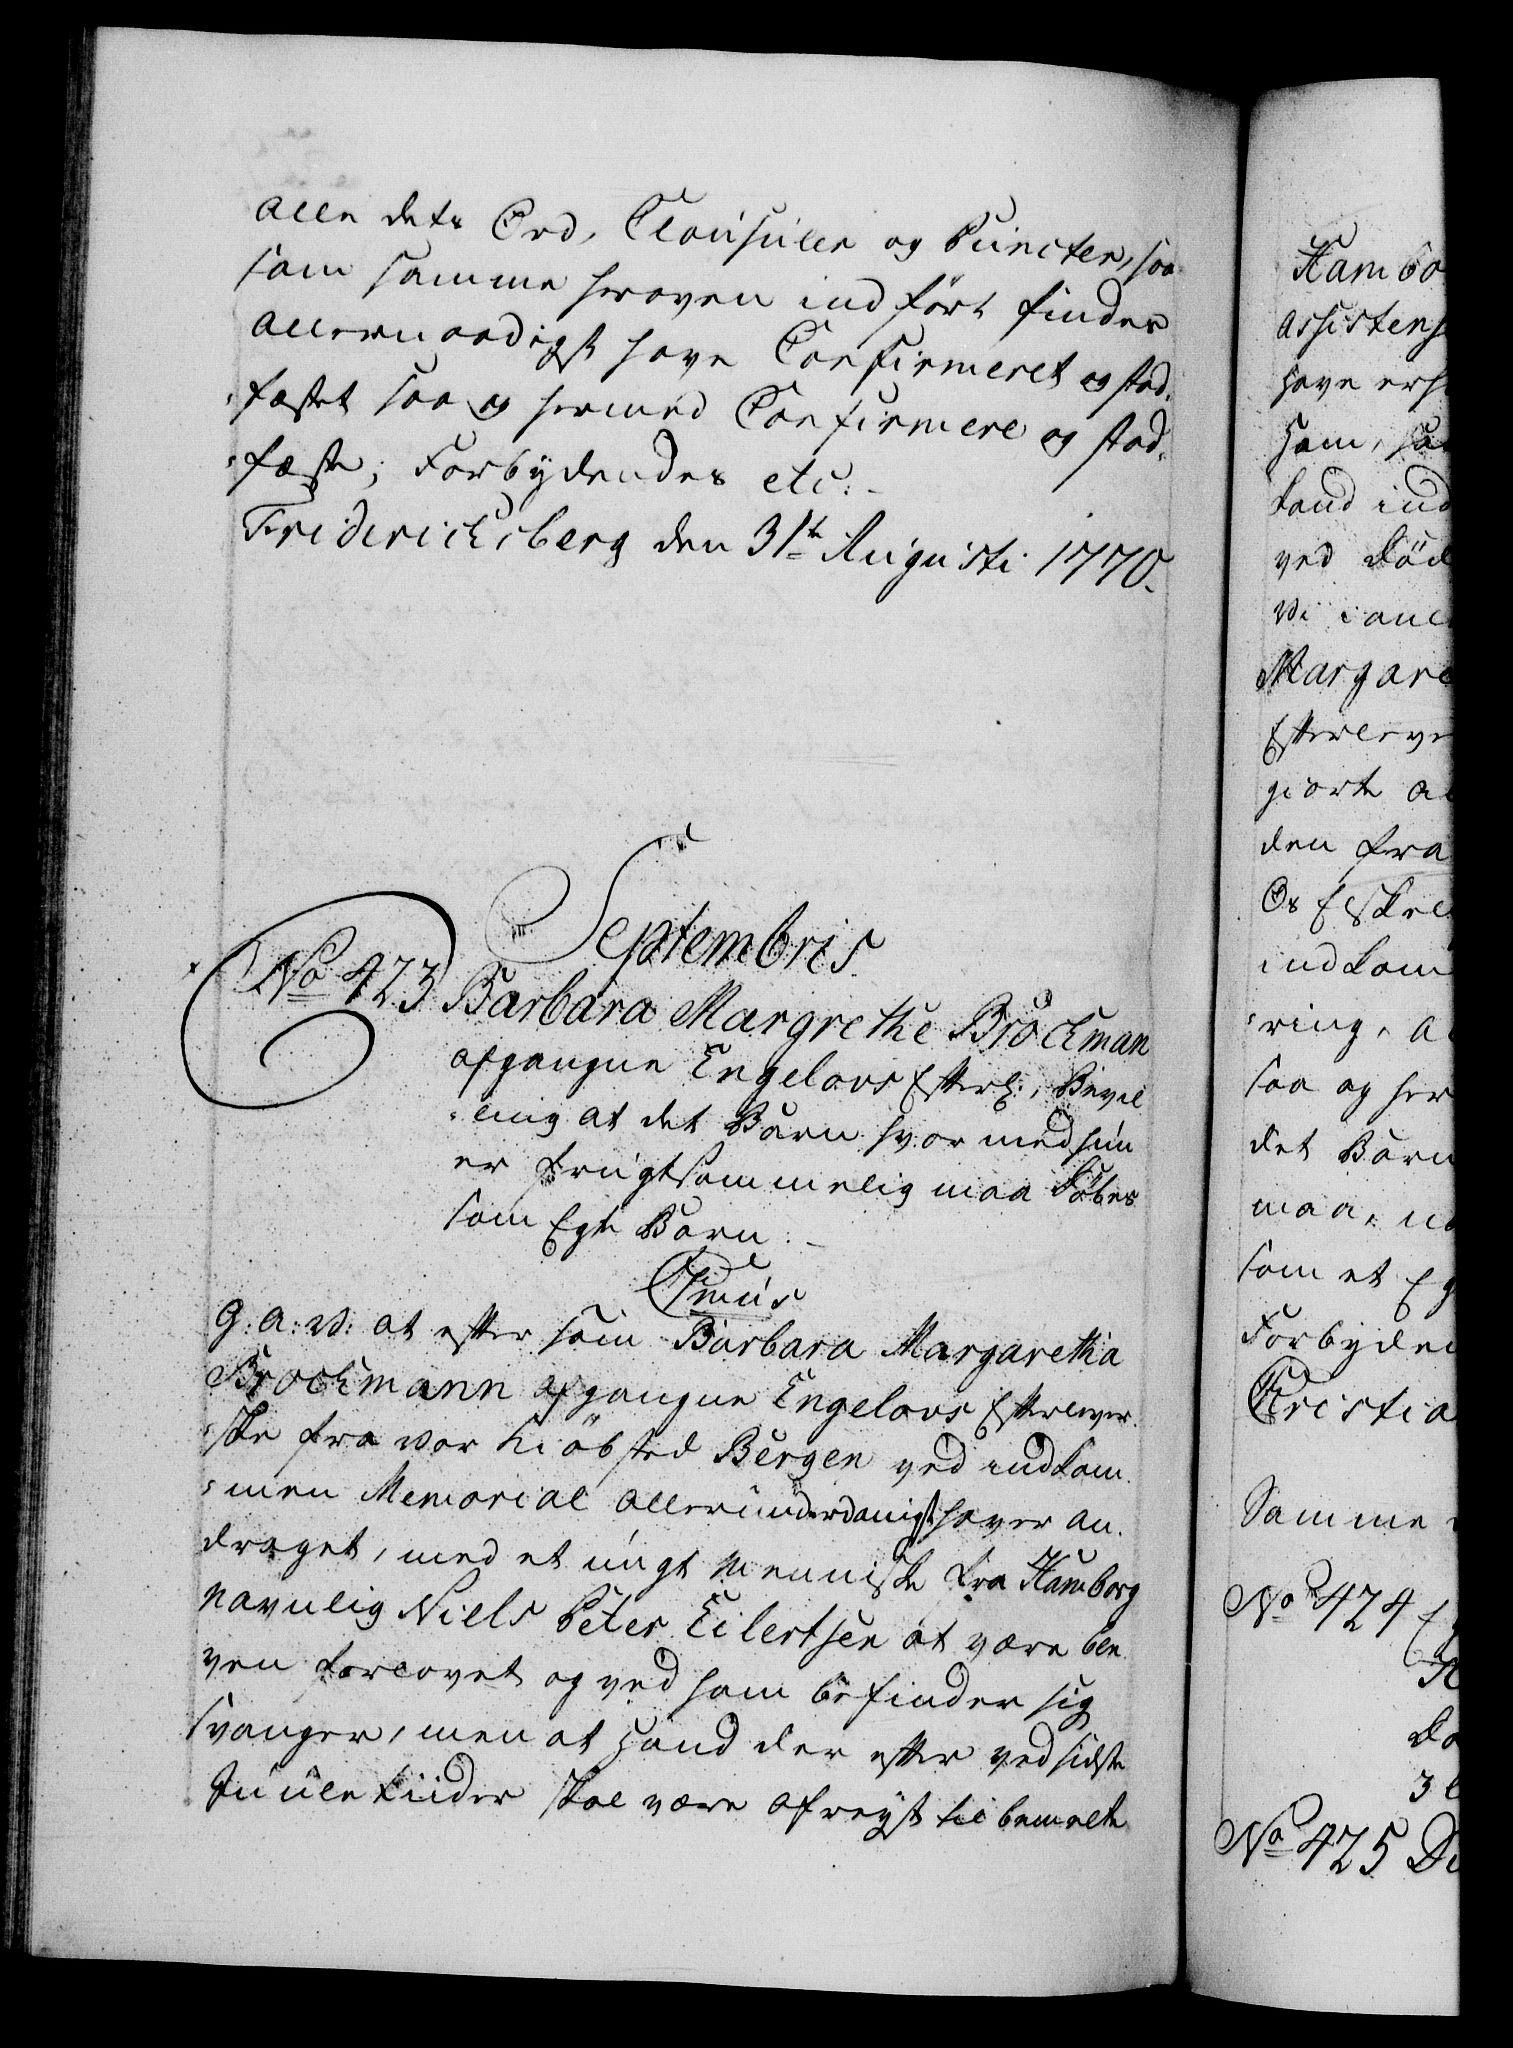 alle dets Ord, Clausuler og Puncter, saa
som samme heroven indført findes
allernaadigst have Confirmeret og stad-
fæstet saa og hermed Confirmere og stad-
fæste; Forbydendes etc:
Friderichsberg den 31te Augusti 1770.
Septembris
No 423 Barbara Margrethe Brochman
afgangne Engelovs Efterl:, Bevil
ling at det Barn hvormed hun
er frugtsommelig maa Døbes
som Egte Barn.
Cxmus
G: A: V: at eftersom Barbara Margaretha
Brochmann afgangne Engelovs Efterlever
ske fra vor Kiøbsted Bergen ved indkom
men Memorial allerunderdanigst haver an
draget, med et ungt Menniske fra Hamborg
navnlig Niels Peter Eilertsen at være ble
ven forlovet og ved ham befinder sig
svanger, men at Hand der efter ved sidste
Juule Tiider skal være afreyst til bemelte
Hambo
assistens
have erh
ham, saa
land ind
ved Død
Vi i anle
Margare
Efterleve
giorte a
den fra
Os Elskel
indkom
ring, a
saa og her
det Barn
maa, n
som et Eg
Forbyden
Christia
Samme
No 424
Do
3
No 425 D